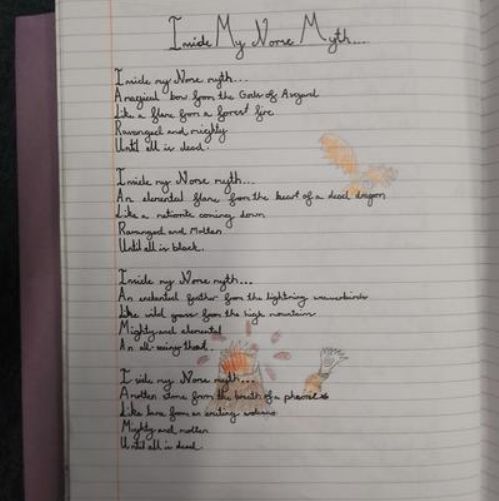 Inside My Norse Myth....
Inside my Norse myth...
A magical bow from the Gods of Asgard
Like a flame from a forest fire
Ravanged and mighty
Until all is dead.
Inside my Norse myth...
An elemental flame from the heart of a dead dragon
Like a coming down
Ravanged and Molten
Until all is black.
Inside my Norse myth...
An feather from the lightning
Like wild grass from the high mountains
Mighty and elemental
An all-seeing
I side my Norse myth...
A stone from the of a
Like lava from an
Mighty and molten
Until all is dead.